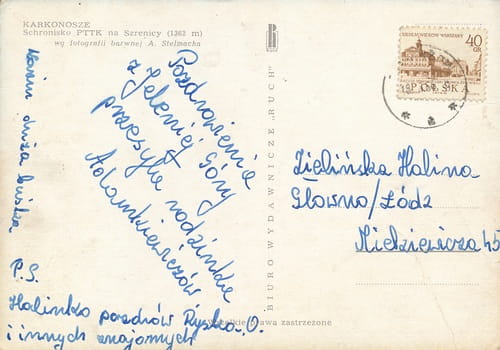 KARKONOSZE
Schronisko PTTK na Szrenicy (1362 m)
wg fotografii barwnej A. Stelmacha
Pozdrowienia
z Jeleniej Góry
przesyła rodzinka
Adamkiewiczów
P.S.
Halinko pozdrów Ryśka O.
i innych znajomych
BIURO WYDAWNICZE „RUCH”
zastrzeżone
700 WIEKÓW WARSZAWY
40
GR
POLSKA
Zielińska Halina
Głowno/Łódz
Mickiewicza 45